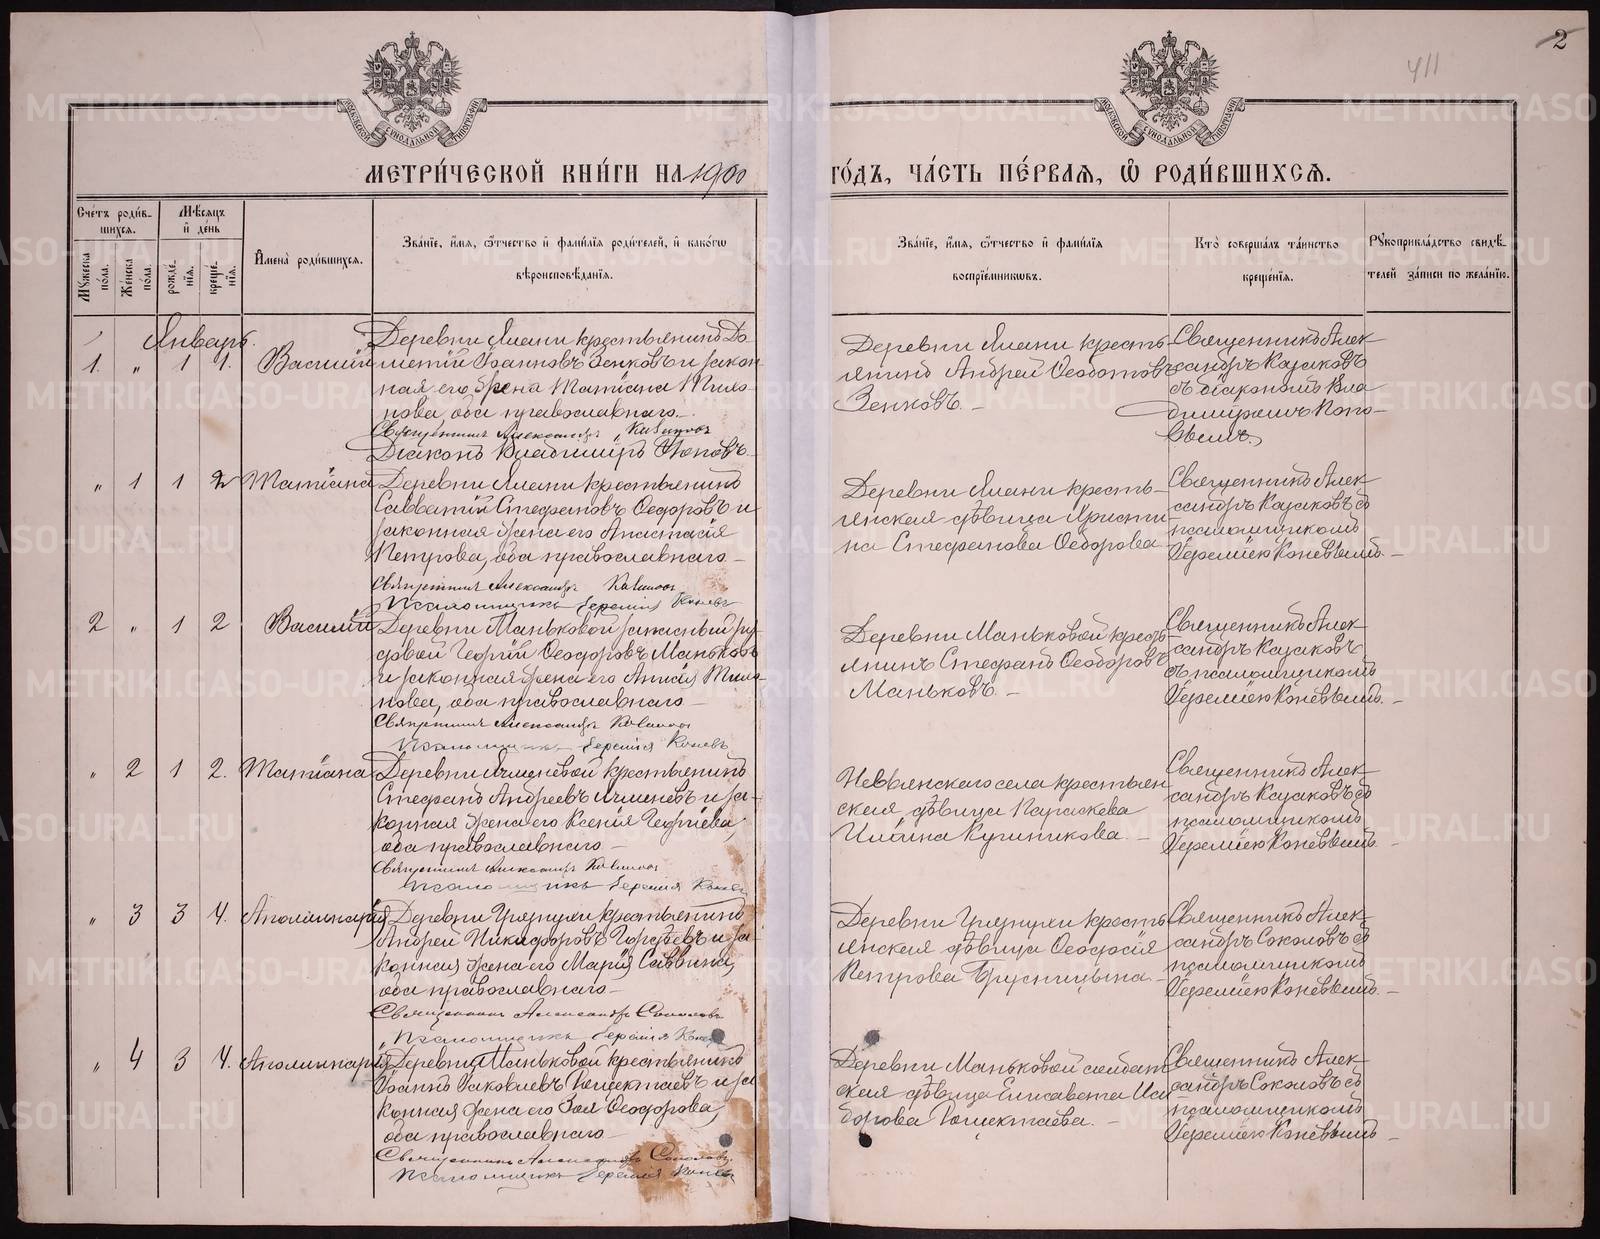 2
411
МЕТРИ́ЧЕСКОЙ КНИ́ГИ НА 1900
ГО́ДЪ, ЧА́СТЬ ПЕ́РВАЯ, Ѡ҆ РОДИ́ВШИХСѦ.
Сче́тъ роди́в-
шихсѧ.
Мѣ́сѧцъ
и҆ де́нь
И҆мена̀ роди́вшихсѧ.
Зва́нїе, и҆́мѧ, ѻ҆́тчество и҆ фами́лїѧ роди́телей, и҆ како́гѡ
вѣроисповѣ́данїѧ.
Мꙋ́жеска по́ла.
Же́нска по́ла.
рожде́нїѧ.
креще́нїѧ.
Зва́нїе, и҆́мѧ, ѻ҆́тчество и҆ фами́лїѧ
воспрїе́мникѡвъ.
Кто̀ соверша́лъ та́инство
креще́нїѧ.
Рꙋкоприкла́дство свидѣ́-
телей за́писи по жела́нїю.
Январь.
1. " 1 1. Василий
Деревни Ялани крестьянинъ До-
метій Іоанновъ Зенковъ и закон-
ная его жена Татіана Тихо-
нова, оба православнаго.
Священникъ Александръ Казаковъ
Діаконъ Владиміръ Поповъ.
Деревни Ялани кресть-
янинъ Андрей Ѳеодотовъ
Зенковъ. –
Священникъ Алек-
сандръ Казаковъ
съ діакономъ Вла-
диміромъ Попо-
вымъ.
" 1 1 2 Татіана
Деревни Ялани крестьянинъ
Савватій Стефановъ Ѳедоровъ и
законная жена его Анастасія
Петрова, оба православнаго –
Священникъ Александръ Казаковъ
Псаломщикъ Іеремія Коневъ
Деревни Ялани кресть-
янская дѣвица Христи-
на Стефанова Ѳедорова –
Священникъ Алек-
сандръ Казаковъ съ
псаломщикомъ
Іереміею Коневымъ. –
2 " 1 2 Василій
Деревни Маньковой
Георгій Ѳеодоровъ Маньковъ
и законная жена его Аннія Тихо-
нова, оба православнаго –
Священникъ Александръ Казаковъ
Псаломщикъ Іеремія Коневъ
Деревни Маньковой кресть-
янинъ Стефанъ Ѳеодоровъ
Маньковъ. –
Священникъ Алек-
сандръ Казаковъ
съ псаломщикомъ
Іереміею Коневымъ. –
" 2 1 2. Татіана
Деревни Ячменевой крестьянинъ
Стефанъ Андреевъ Ячменевъ и за-
конная жена его Ксенія Георгіева,
оба православнаго –
Священникъ Александръ Казаковъ
Псаломщикъ Іеремія Коневъ
Невьянскаго села крестьян-
ская дѣвица Параскева
Ильина Кузинкова. –
Священникъ Алек-
сандръ Казаковъ съ
псаломщикомъ
Іереміею Коневымъ. –
" 3 3 4. Аполлинарія
Деревни Гряznухи крестьянинъ
Андрей Никифоровъ Гордѣевъ и за-
конная жена его Марія Саввина,
оба православнаго –
Священникъ Александръ Соколовъ
Псаломщикъ Іеремія Коневъ
Деревни Грязнухи кресть-
янская дѣвица Ѳеодосія
Петрова Брусницына –
Священникъ Алек-
сандръ Соколовъ съ
псаломщикомъ
Іереміею Коневымъ. –
" 4 3 4. Аполлинарія
Деревни Маньковой крестьянинъ
Іоаннъ Іаковлевъ Юшектаевъ и за-
конная жена его Зоя Ѳеодорова,
оба православнаго –
Священникъ Александръ Соколовъ
Псаломщикъ Іеремія Коневъ
Деревни Маньковой солдат-
ская дѣвица Елисавета Иси-
дорова Юшектаева. –
Священникъ Алек-
сандръ Соколовъ съ
псаломщикомъ
Іереміею Коневымъ –
METRIKI.GASO-URAL.RU